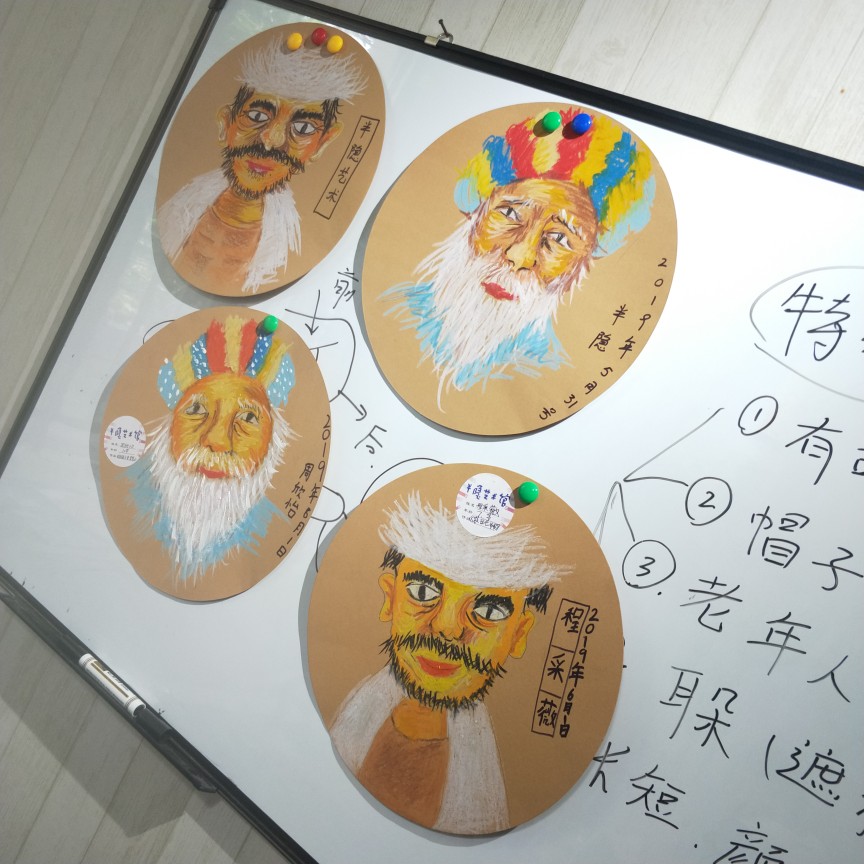 半隐艺术
2019年5月31号
半隐
2019年6月1日
周欣怡
半隐艺术馆
2019年6月1日
程采薇
半隐艺术馆
程采薇
前
后.
特
① 有
② 帽子
③. 老年人
耳朵(遮
长短.颜